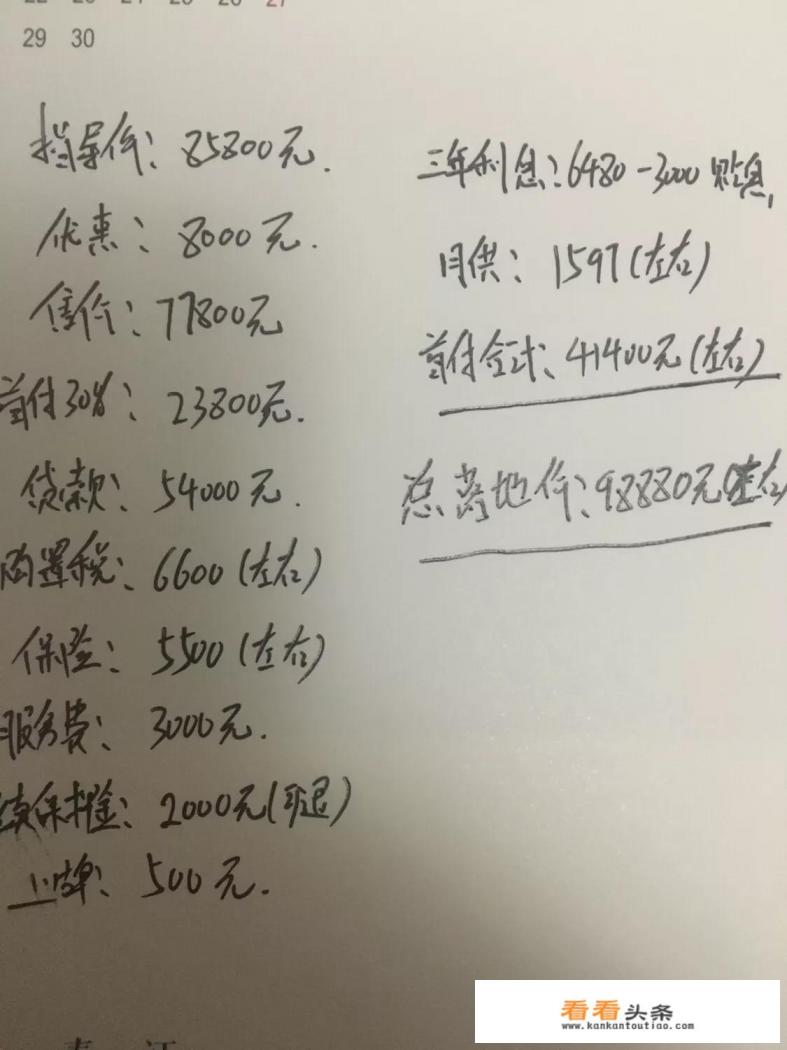 29 30
指导价：85800元.
优惠：8000元.
售价：77800元
首付30%：23800元.
贷款：54000元.
购置税：6600(左右)
保险：5500(左右)
服务费：3000元.
续保押金：2000元(可退)
上牌：500元.
三年利息：6480-3000贴息,
月供：1597(左右)
首付合计：41400元(左右)
总离地价：98880元(左右)
看看头条
www.kankantoutiao.com